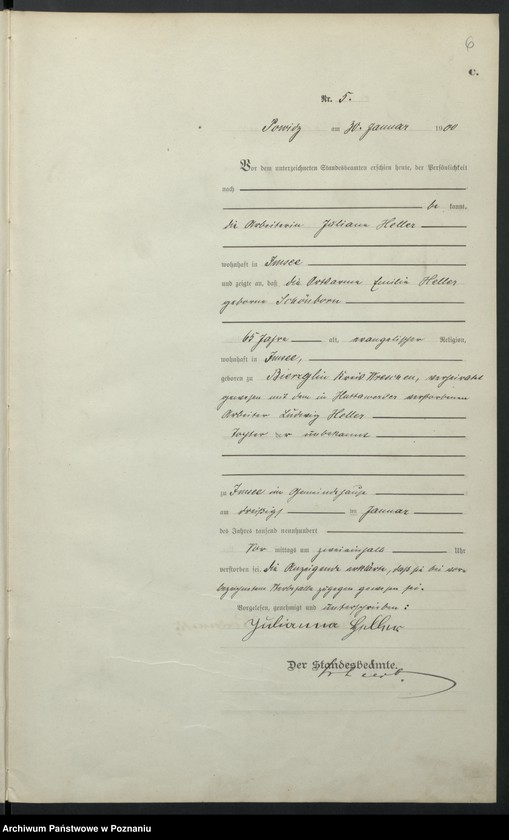 6
C.
Nr. 5.
Powidz am 30. Januar 1900
Vor dem unterzeichneten Standesbeamten erschien heute, der Persönlichkeit
nach
be kannt,
die Arbeiterin Juliana Heller
wohnhaft in Imsee
und zeigte an, daß die Ortsarme Emilie Heller
geborne Schönborn
65 Jahre alt, evangelischer Religion,
wohnhaft in Imsee,
geboren zu Bierzglin Kreis Wreschen, verheirathet
gewesen mit dem in verstorbenen
Arbeiter Ludwig Heller
Tochter unbekannt
zu Imsee im Gemeindehause
am dreißigsten im Januar
des Jahres tausend neunhundert
Vor mittags um zweieinhalb Uhr
verstorben sei. Die Anzeigende erklärte, daß sie bei vor-
bezeichnetem Sterbefalle zugegen gewesen sei.
Vorgelesen, genehmigt und unterschrieben:
Julianna Heller
Der Standesbeamte.
Archiwum Państwowe w Poznaniu